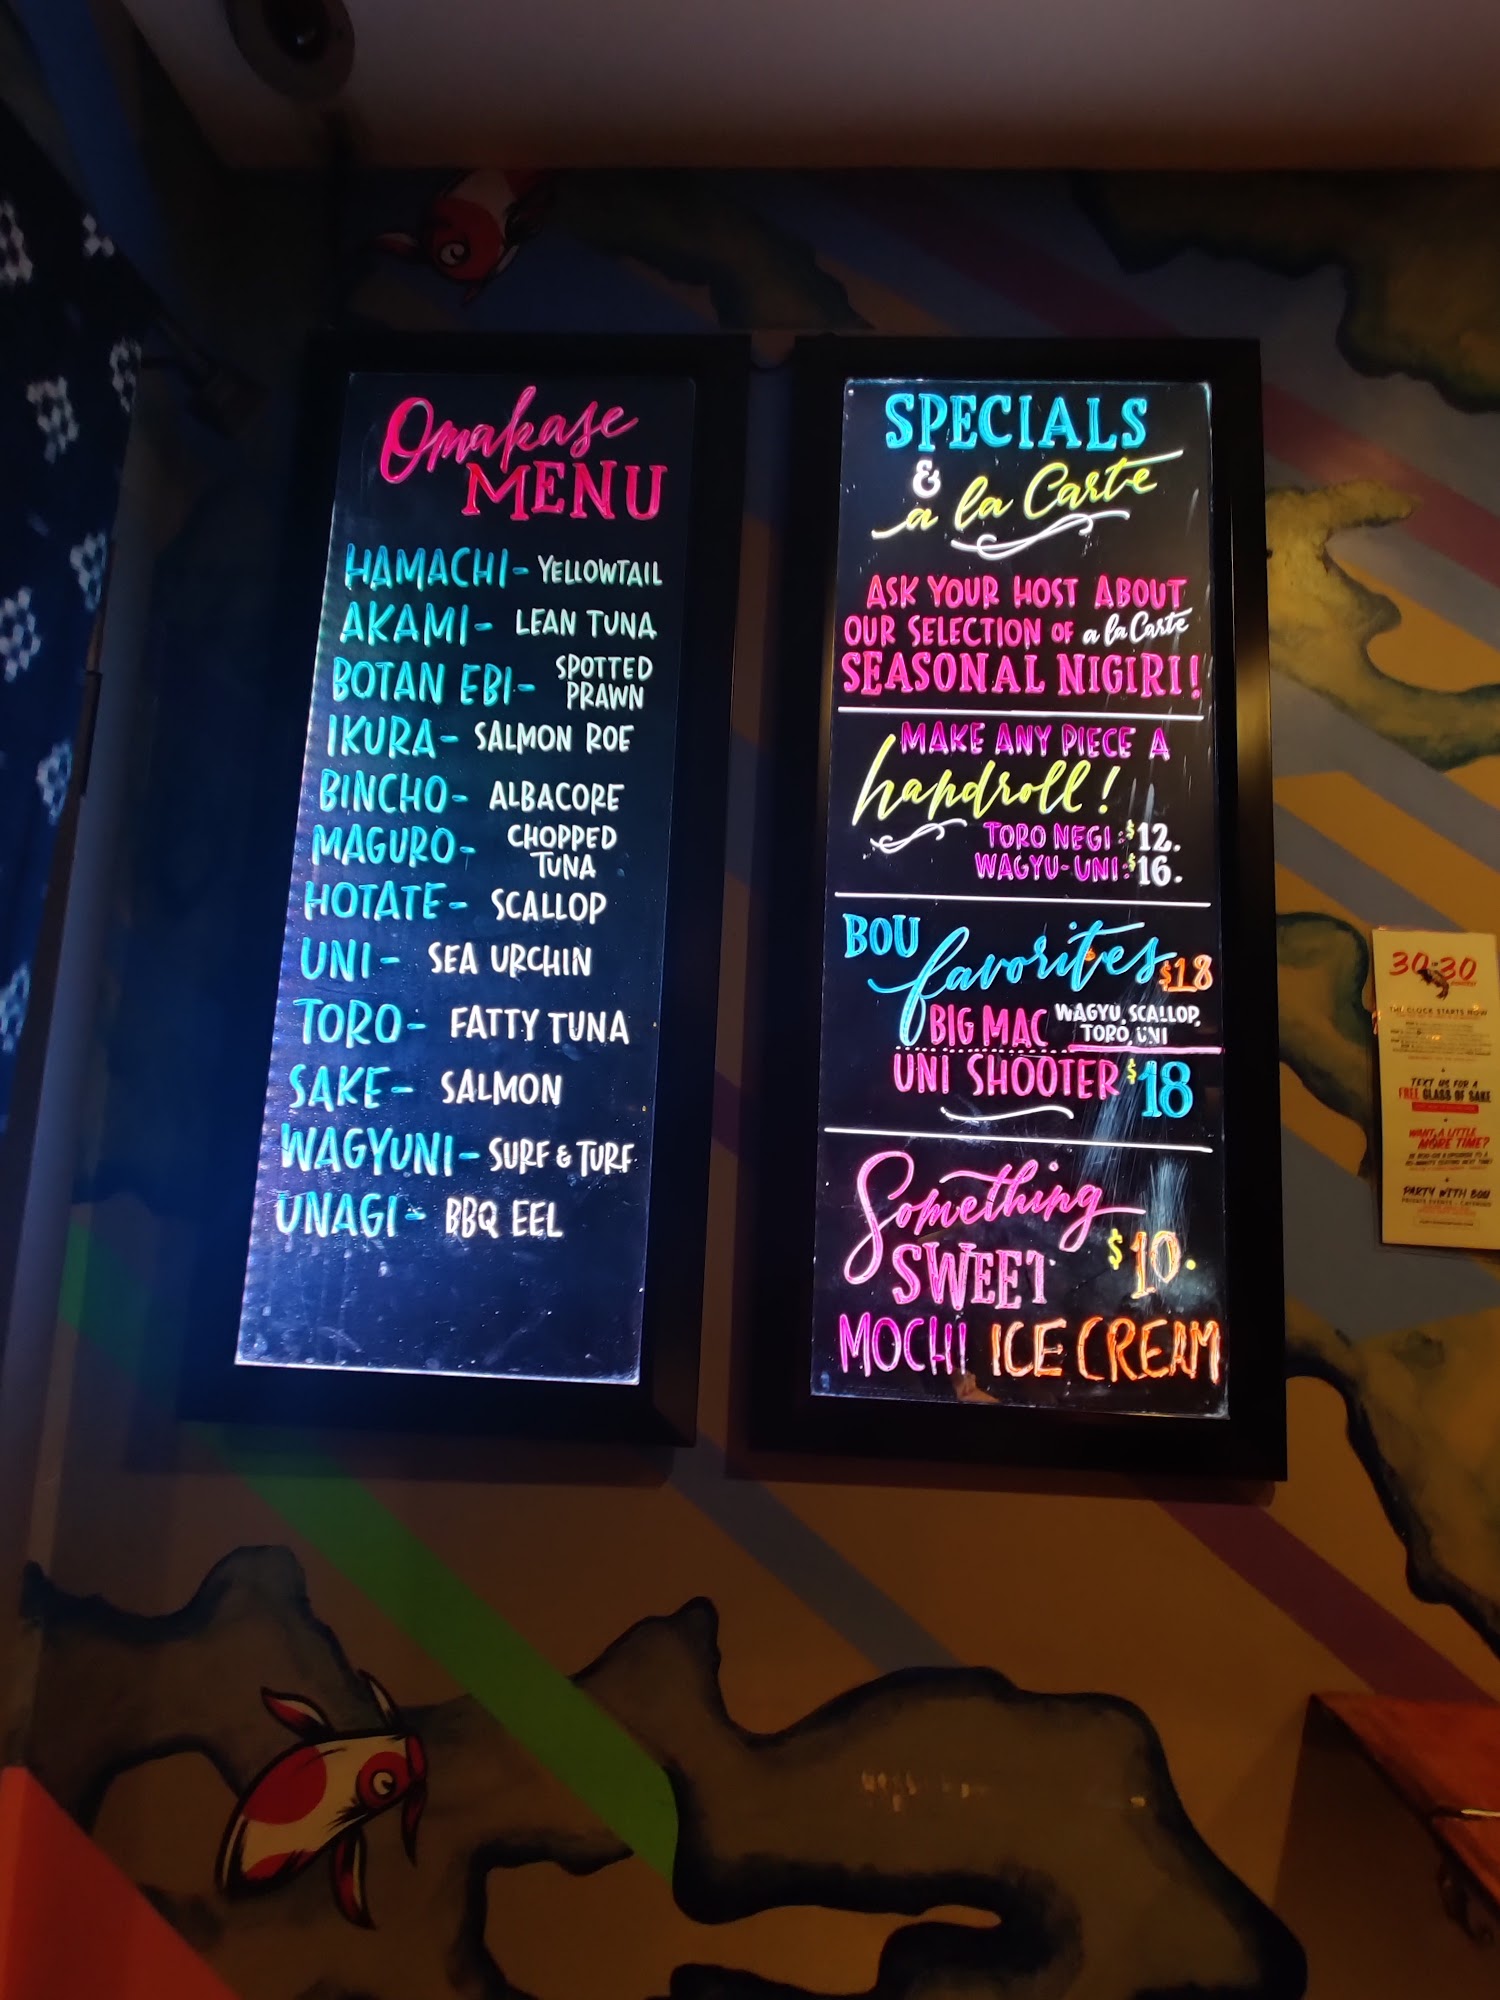 Omakase
MENU
HAMACHI - YELLOWTAIL
AKAMI - LEAN TUNA
BOTAN EBI - SPOTTED
PRAWN
IKURA - SALMON ROE
BINCHO - ALBACORE
MAGURO - CHOPPED
TUNA
HOTATE - SCALLOP
UNI - SEA URCHIN
TORO - FATTY TUNA
SAKE - SALMON
WAGYUNI - SURF & TURF
UNAGI - BBQ EEL
SPECIALS
&
a la Carte
ASK YOUR HOST ABOUT
OUR SELECTION OF a la Carte
SEASONAL NIGIRI!
MAKE ANY PIECE A
handroll!
TORO NEGI: $12.
WAGYU-UNI: $16.
BOU favorites $18
BIG MAC WAGYU, SCALLOP,
TORO, UNI
UNI SHOOTER $18
Something
SWEET $10.
MOCHI ICE CREAM
30-30
THE CLOCK STARTS NOW
TEXT US FOR A
FREE GLASS OF SAKE
WANT A LITTLE
MORE TIME?
PARTY WITH BOU